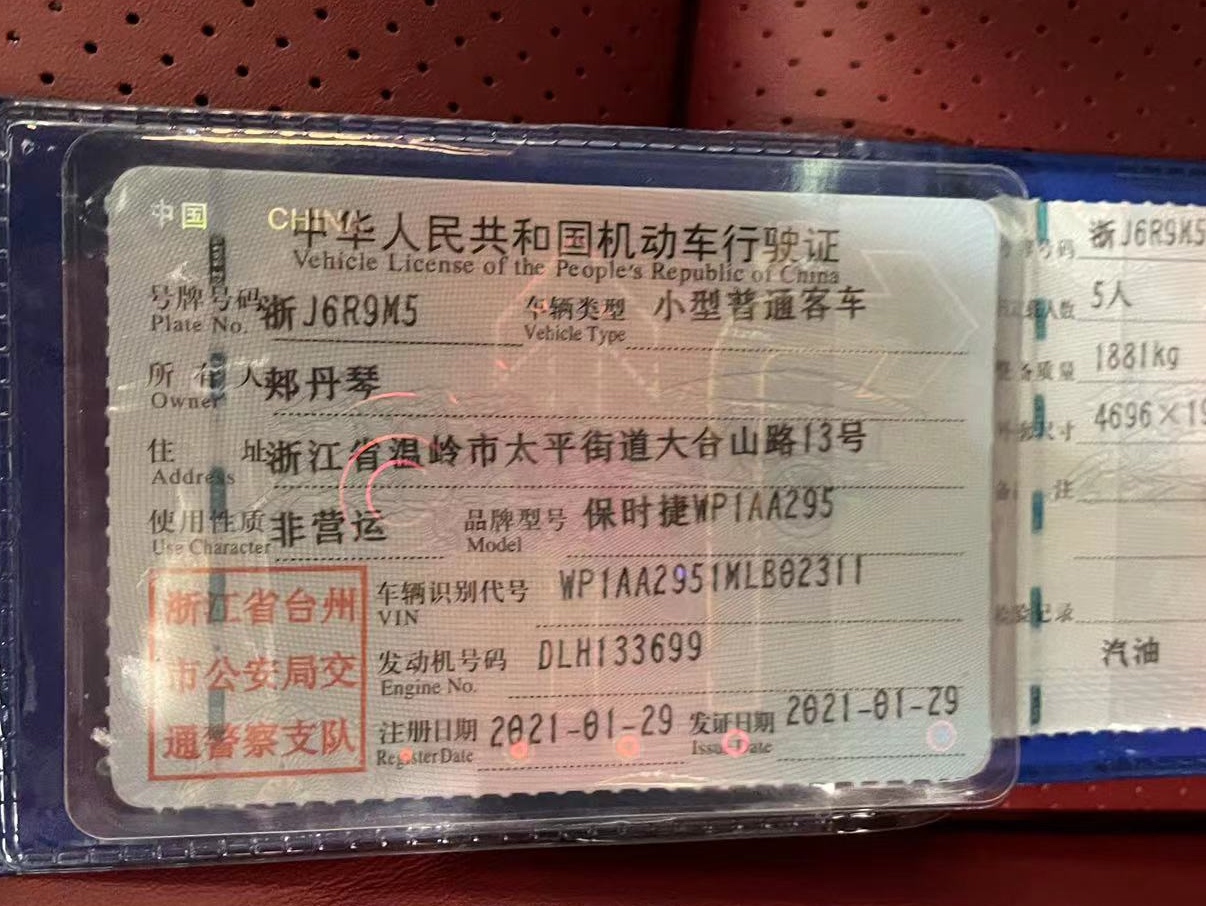 中国 CHINA
中华人民共和国机动车行驶证
Vehicle License of the People's Republic of China
号牌号码 浙J6R9M5 车辆类型 小型普通客车
Plate No. Vehicle Type
所有人 郏丹琴
Owner
住址 浙江省温岭市太平街道大合山路13号
Address
使用性质 非营运 品牌型号 保时捷WP1AA295
Use Character Model
浙江省台州
市公安局交
通警察支队
车辆识别代号 WP1AA2951MLB02311
VIN
发动机号码 DLH133699
Engine No.
注册日期 2021-01-29 发证日期 2021-01-29
Register Date Issue Date
号码 浙J6R9M5
人数 5人
质量 1881kg
尺寸 4696×19
注
记录
汽油